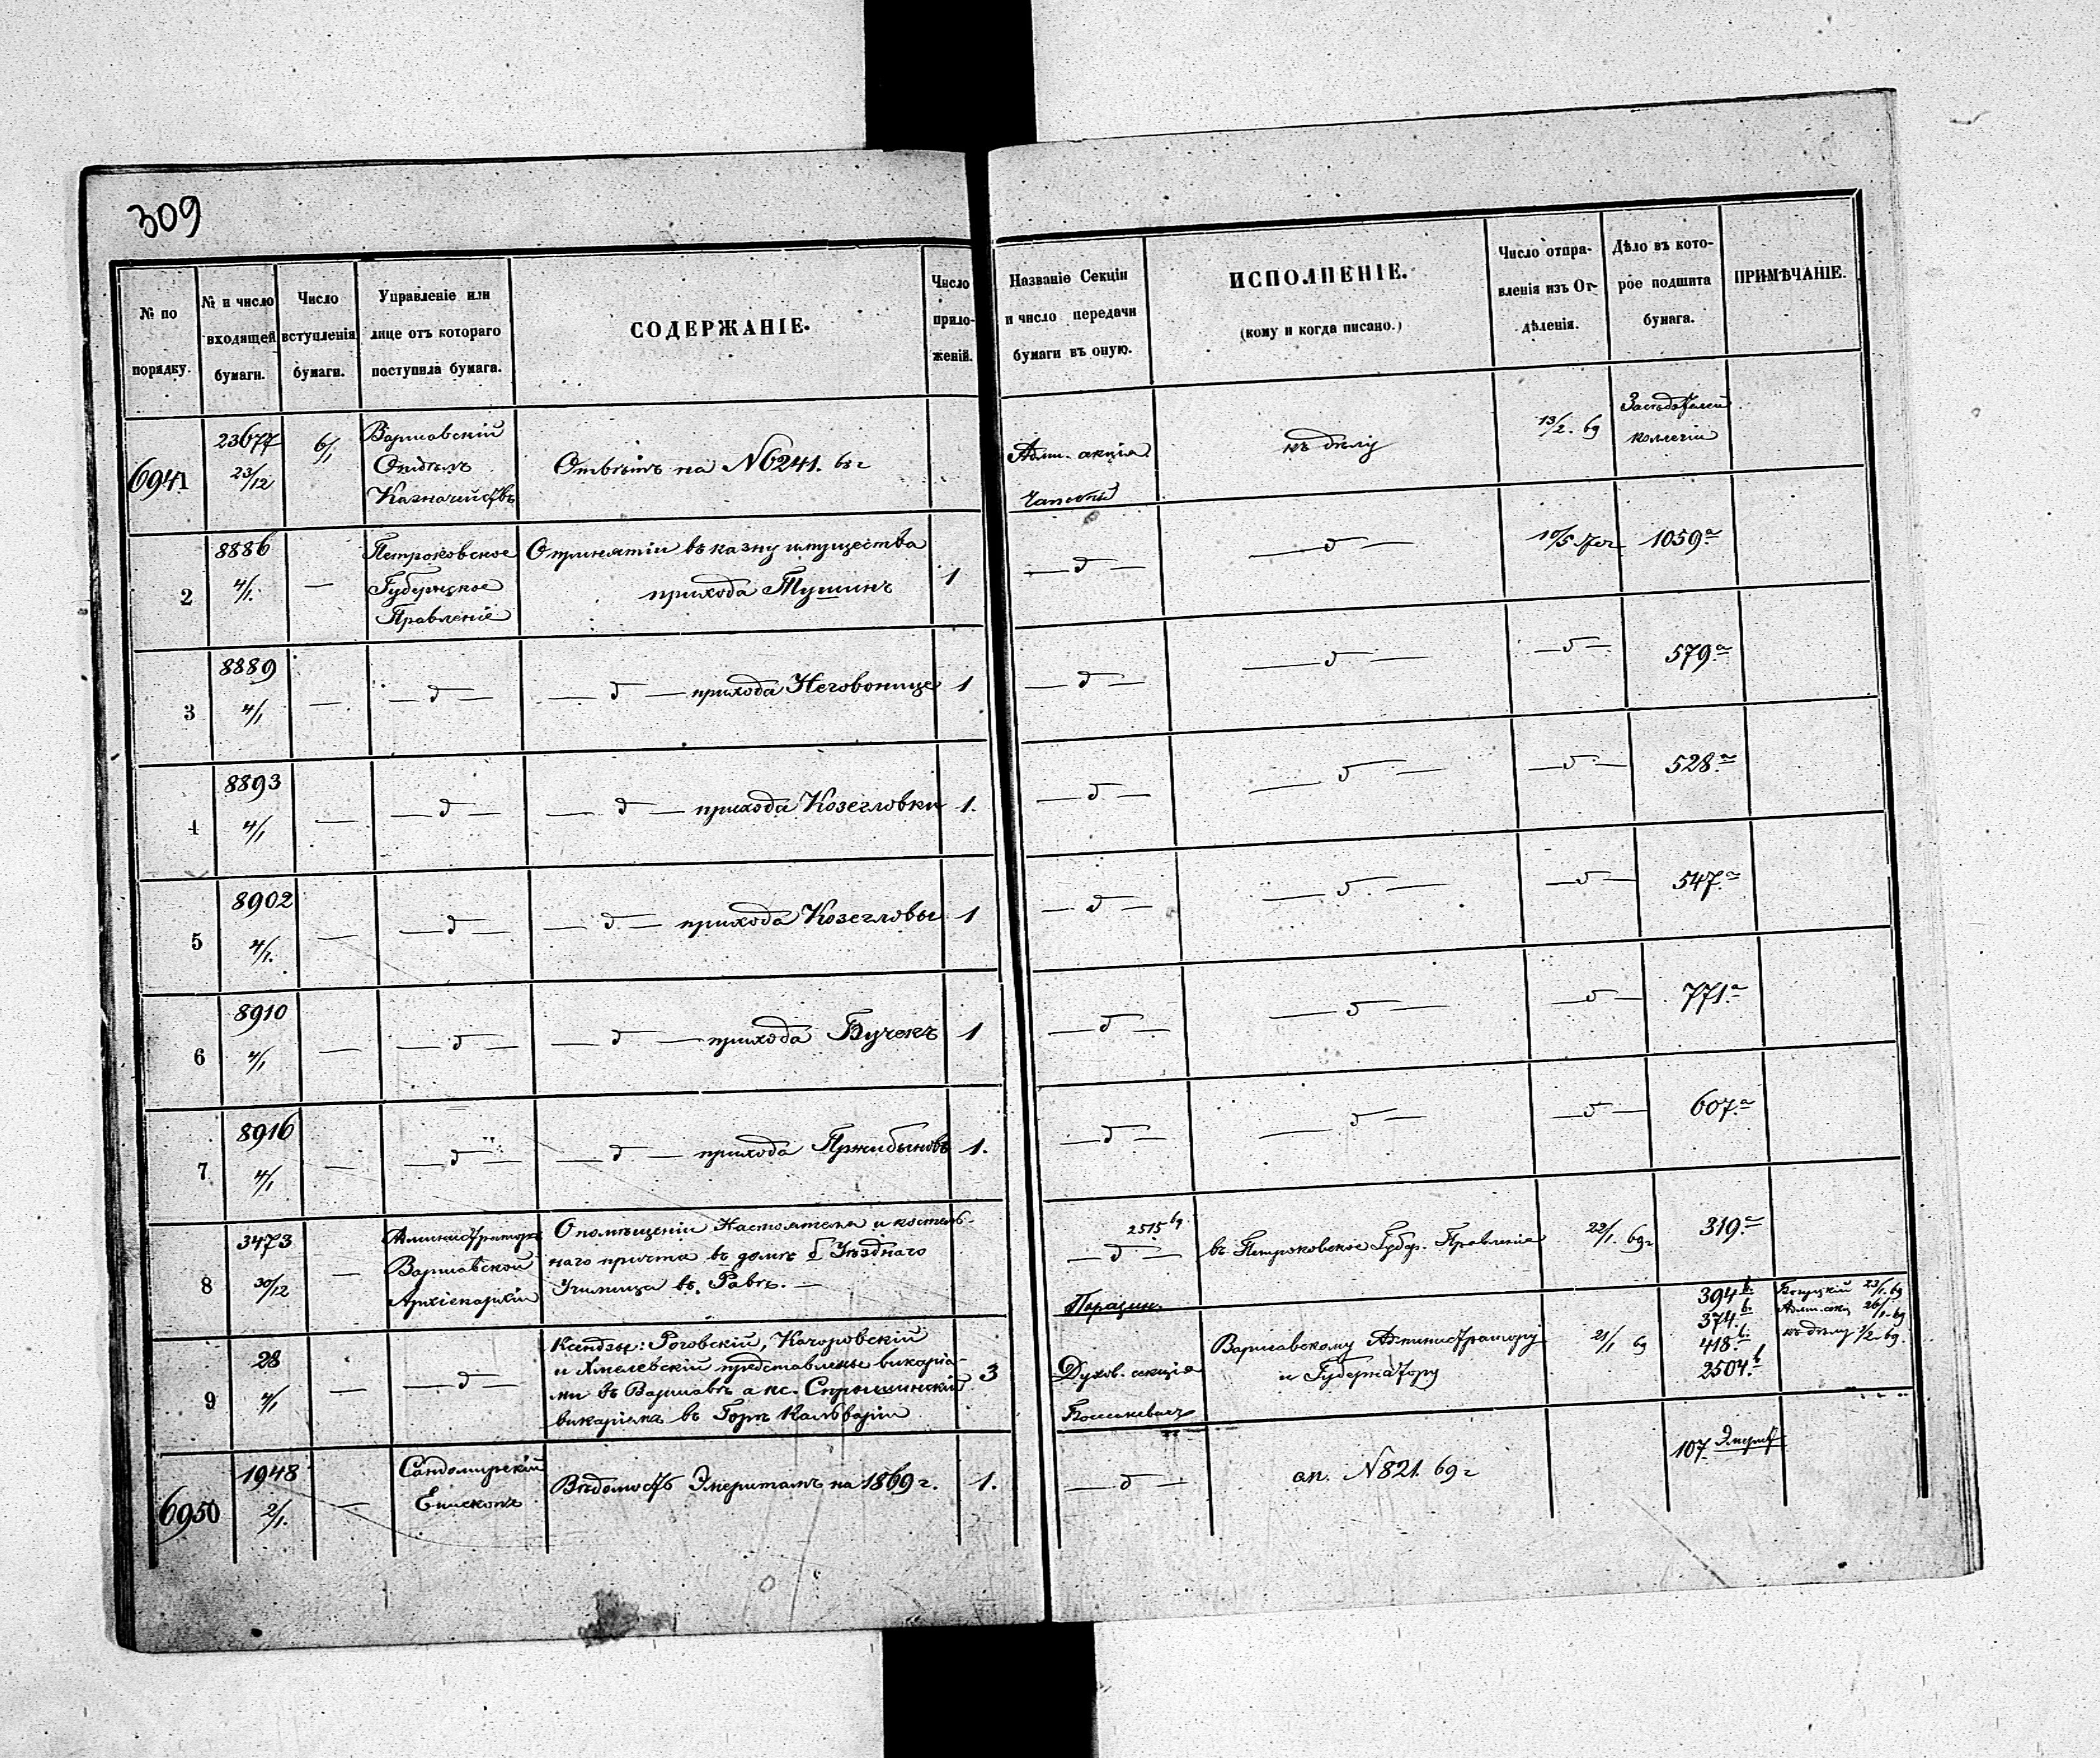 309
№ по
порядку.
№ и число
входящей
бумаги.
Число
вступленія
бумаги.
Управленіе или
лице отъ котораго
поступила бумага.
СОДЕРЖАНІЕ.
Число
прило-
женій.
Названіе Секціи
и число передачи
бумаги въ оную.
ИСПОЛНЕНІЕ.
(кому и когда писано.)
Число отпра-
вленія изъ От-
дѣленія.
Дѣло въ кото-
рое подшита
бумага.
ПРИМѢЧАНІЕ.
6941
23677
23/12
6/1
Варшавскій
Отдѣлъ
Казначействъ
Отвѣтъ на N 6241. 68 г
Адм. секція
къ дѣлу
13/2. 69
2
8886
4/1.
—
Петроковское
Губернское
Правленіе
О принятіи въ казну имущества
прихода Тушинъ
1
— д —
— д —
10/5
1059.а
3
8889
4/1
—
— д —
— д — прихода Неговонице
1
— д —
— д —
— д —
579.а
4
8893
4/1
—
— д —
— д — прихода Козегловки
1.
— д —
— д —
— д —
528.а
5
8902
4/1.
—
— д —
— д — прихода Козегловы
1
— д —
— д —
— д —
547.а
6
8910
4/1
—
— д —
— д — прихода Бучекъ
1
— д —
— д —
— д —
771.а
7
8916
4/1
—
— д —
— д — прихода Пржибыновъ
1.
— д —
— д —
— д —
607.а
8
3473
30/12
—
Администраторъ
Варшавской
Архіепархіи
О помѣщеніи Настоятеля и костель-
наго причта въ домѣ б. Уѣзднаго
Училища въ Равѣ. —
2515 69
— д —
въ Петроковское Губер. Правленіе
22/1. 69 г
319.а
9
28
4/1
—
— д —
Ксендзы: Роговскій, Качоровскій
и Хмелевскій представлены викарія-
ми въ Варшавѣ а кс. Спрышинскій
викаріемъ въ Горѣ Кальваріи
3
Духов. секція
Варшавскому Администратору
и Губернатору
21/1 69
394 b.
374. b.
418. b.
2504. b
23/1. 69
Адм. секц 26/1. 69
къ дѣлу 1/2. 69.
6950
1948
2/1.
—
Сандомирскій
Епископъ
Вѣдомость Эмеритамъ на 1869 г.
1.
— д —
ап. N 821. 69 г
107.